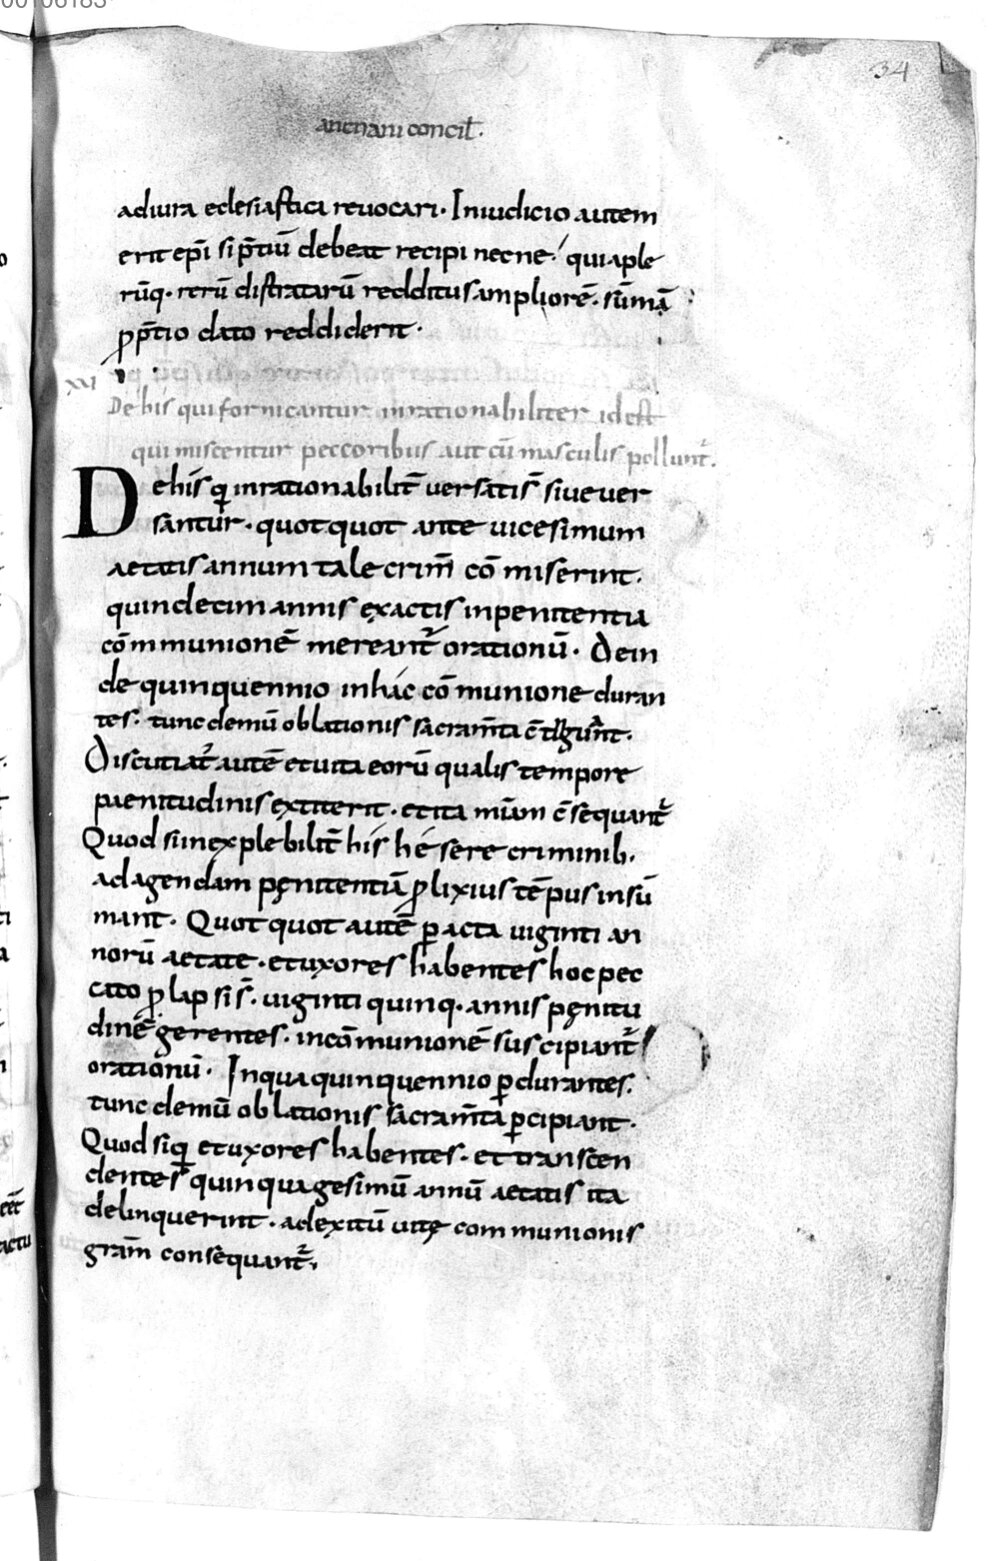 34
ancyrani concil̄.
adiura eclesiastica reuocari. Iniudicio autem
erit ep̄i si p̄tiū debeat recipi necne. quiaple
rūq. rerū distratarū redditus ampliorē. sūmā
p̄p̄tio dato reddiderit.
XVI
De his qui fornicantur inrationabiliter id est
qui miscentur peccoribus aut cū masculis pollunt̄.
De his q inrationabilit̄ uersati s̄ siue uer
santur. quotquot ante uicesimum
aetatis annum tale crim̄ cō miserint.
quindecim annis exactis inpenitentia
cōmmunionē mereant̄ orationū. Dein
de quinquennio in hac cō munione duran
tes. tunc demū oblationis sacram̄ta
Discutiat̄ autē et uita eorū qualis tempore
paenitudinis extiterit. et ita c̄sequant̄
Quod si inexplebilit̄ his hésere criminib.
ad agendam pęnitentiā ꝓlixius tēpus insū
mant. Quotquot autē ꝑacta uiginti an
norū aetate. et uxores habentes hoc pec
cato ꝓlapsi s̄. uiginti quinq. annis pęnitu
dinē gerentes. incōmunionē suscipiant̄
orationū. In qua quinquennio ꝑdurantes.
tunc demū oblationis sacram̄ta ꝑcipiant.
Quod si q et uxores habentes. et transcen
dentes quinquagesimū annū aetatis ita
delinquerint. ad exitū uitę communionis
gram̄ consequant̄.